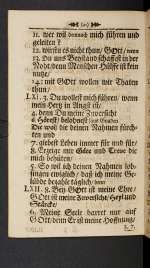 (20)
11. wer wil dennoch mich führen und
geleiten?
12. wirstu es nicht thun/ GOtt/ wenn
13. Du uns Beystand schaffest in der
Noht/ denn Menschen Hülffe ist kein
nütze.
14: mit GOtt wollen wir Thaten
thun/
LXI. 3. Du wollest mich führen/ wenn
mein Hertz in Angst ist/
4. denn Du meine Zuversicht
6 HErrst belohnest
Die wol die deinen Nahmen fürch-
ten und
7. giebest Leben immer für und für/
8. Erzeige mir Güte und Treue die
mich behüten/
9. So wil ich deinen Nahmen lob-
singen ewiglich/ daß ich meine Ge-
lübde bezahle täglich/
LXII. 8. Bey GOtt ist meine Ehre/
GOtt ist meine Zuversicht/ Heyl und
Stärcke/
6. Meine Seele harret nur auf
GOtt/ denn Er ist meine Hoffnung/